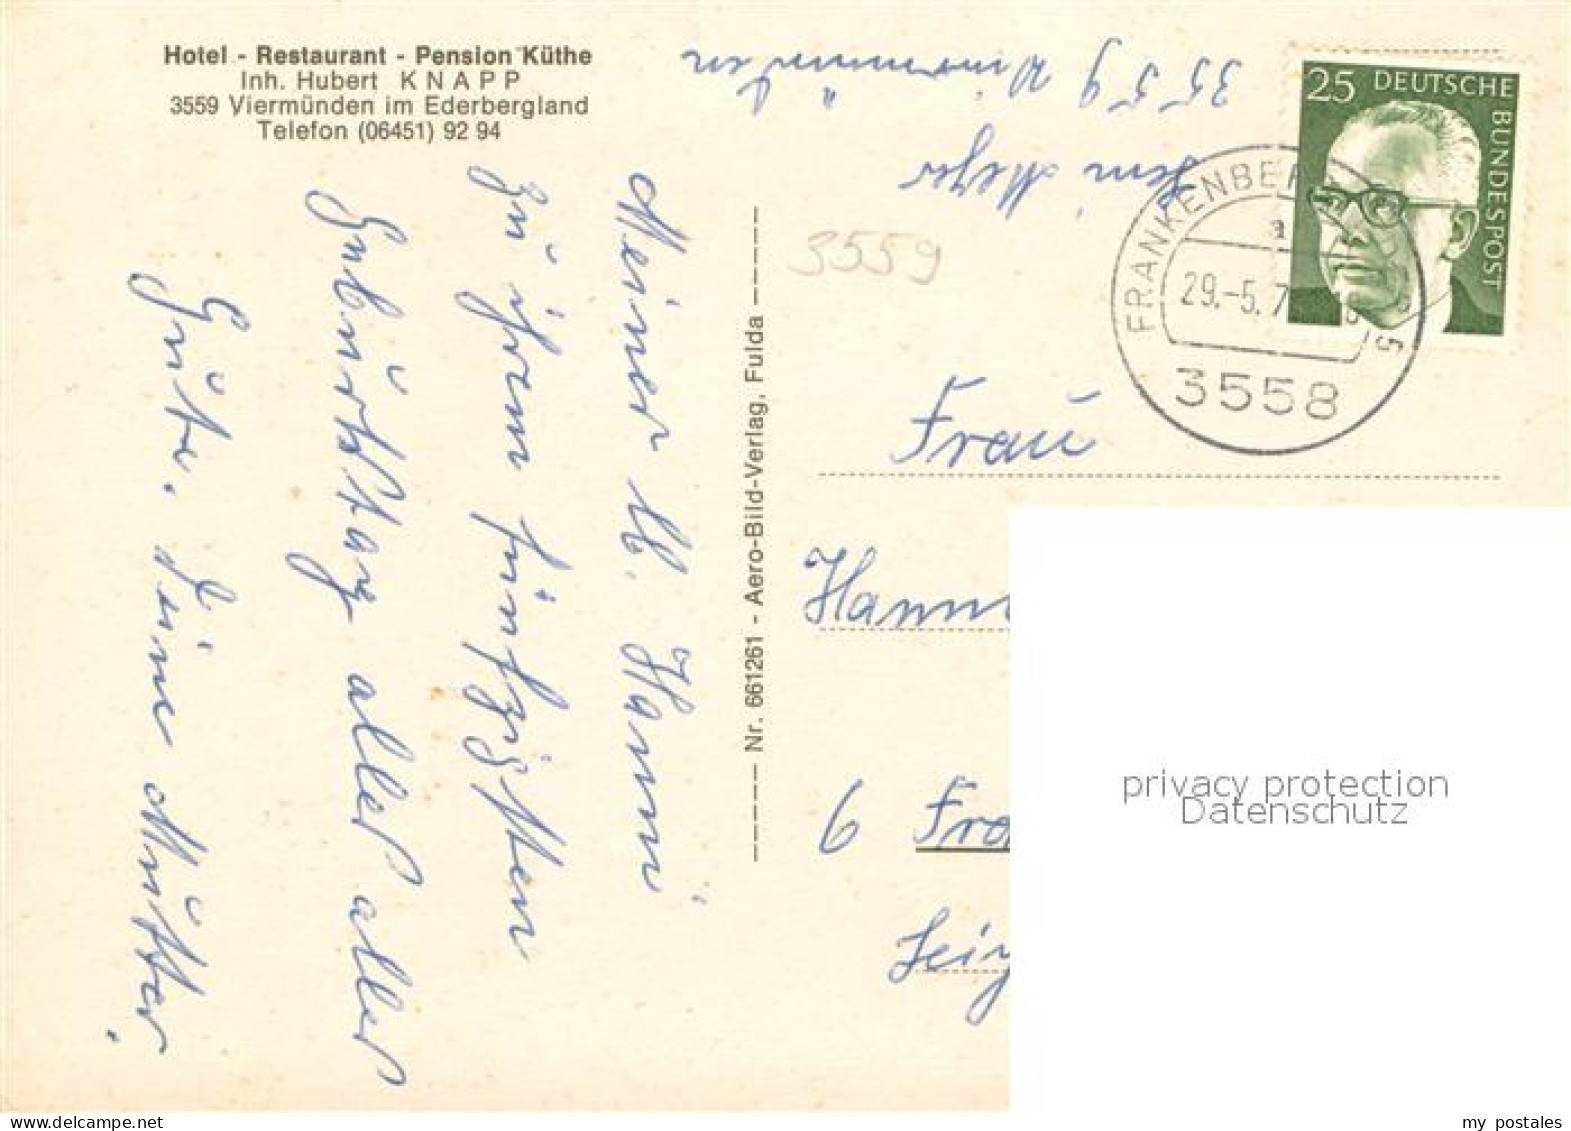 Hotel - Restaurant - Pension Küthe
Inh. Hubert KNAPP
3559 Viermünden im Ederbergland
Telefon (06451) 92 94
Meiner lb. Hanni
zu ihrem fünfzigsten
Geburtstag alles alles
Gute. Deine Mutter.
Nr. 661261 - Aero-Bild-Verlag, Fulda
Meyer
3559 Viermünden
3559
25 DEUTSCHE BUNDESPOST
FRANKENBERG
a
29.-5.7
3558
Frau
Hanni
6 Fra
Leip
privacy protection
Datenschutz
my postales